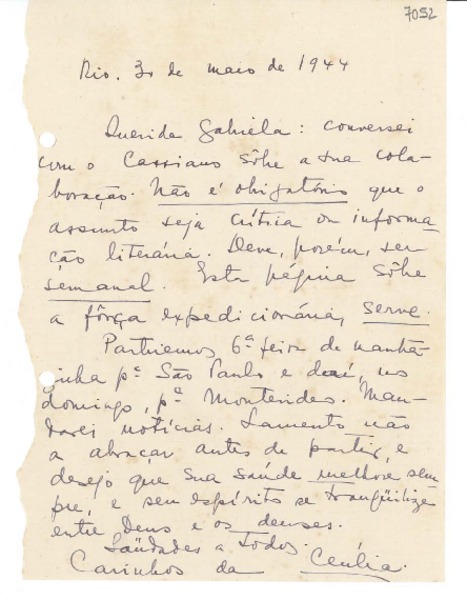 7052
Rio. 30 de maio de 1944
Querida Gabriela: conversei
com o Cassiano sôbre a sua cola-
boração. Não é obrigatório que o
assunto seja crítica ou informa
ção literária. Deve, porém, ser
semanal. Esta página sôbre
a fôrça expedicionária, serve.
Partiremos 6ª feira de manhã-
zinha pª São Paulo e daí, no
domingo, pª Montevideo. Man-
darei notícias. Lamento não
a abraçar antes de partir, e
desejo que sua saúde melhore sem
pre, e seu espírito se tranqüilize
entre Deus e os deuses.
Saüdades a todos.
Carinhos da Cecília.